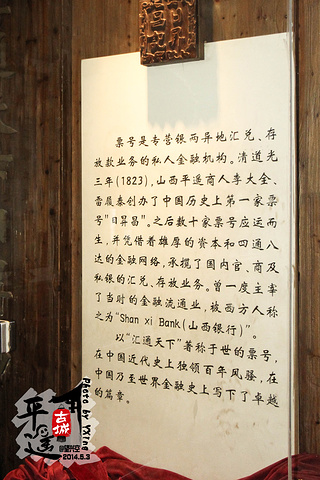 票号是专营银两异地汇兑、存
放款业务的私人金融机构。清道光
三年(1823),山西平遥商人李大全、
雷履泰创办了中国历史上第一家票
号"日昇昌"。之后数十家票号应运而
生,并凭借着雄厚的资本和四通八
达的金融网络,承揽了国内官、商及
私银的汇兑、存放业务。曾一度主宰
了当时的金融流通业,被西方人称
之为"Shan xi Bank(山西银行)"。
以"汇通天下"著称于世的票号,
在中国近代史上独领百年风骚,在
中国乃至世界金融史上写下了卓越
的篇章。
平遥
古城
2014.5.3
Photo by YXing